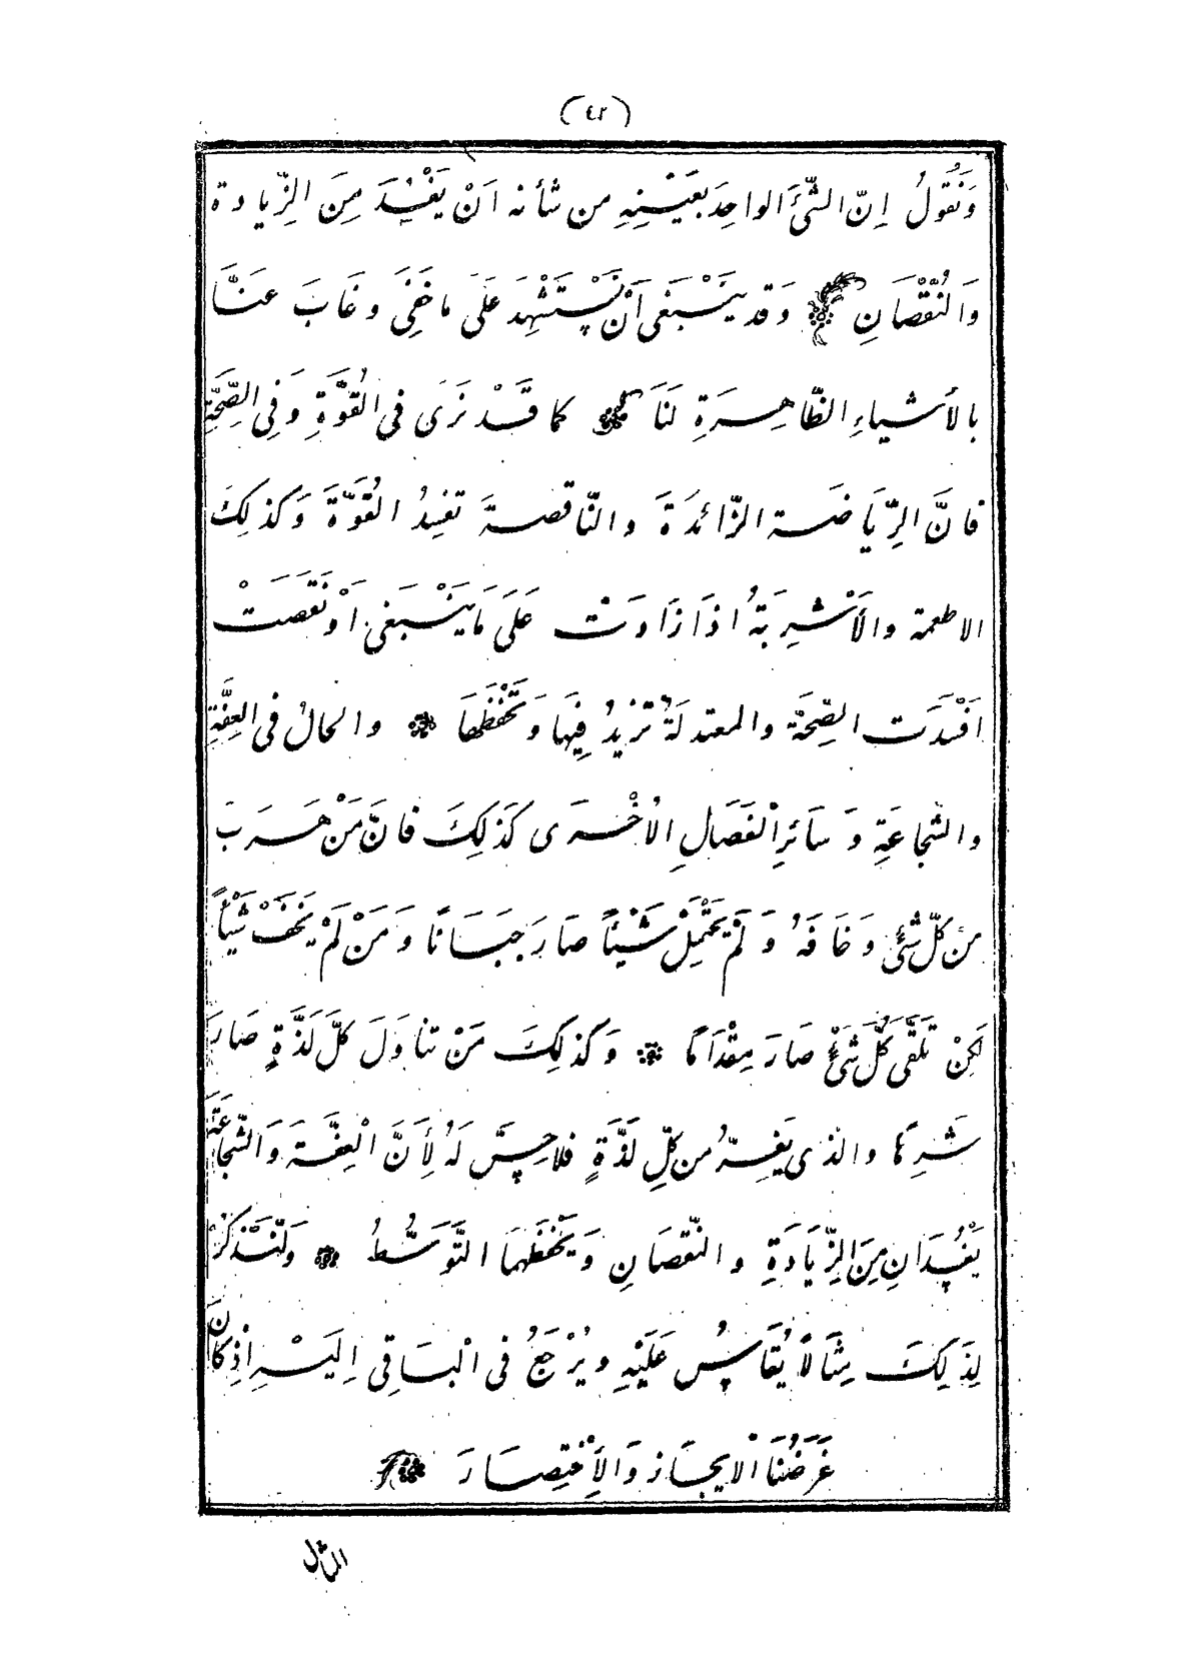 (٤٢)
وَنَقُولُ إِنّ الشَّئَ الواحِدَ بعَيْنِهِ من شأنه اَنْ يَفْسُدَ مِنَ الزِّيادة
وَالنُّقْصَانِ وَقد يَنْبَغى اَنْ يُسْتَشْهِدَ عَلَى ما خَفِىَ وغَابَ عنَّا
بالأشياءِ الظّاهِرَةِ لَنَا كما قَدْ نَرَى فى القُوَّةِ وَفِى الصِّحَّةِ
فانَّ الرِّيَاضَة الزّائدَةَ والنّاقصةَ تفسِدُ القُوَّةَ وَكذلِكَ
الاطعمة والأَشْرِبَةُ اذَا زَادَتْ عَلَى مَا يَنْبَغى اَوْ نَقَصَتْ
اَفْسَدَت الصِّحَّة والمعتدلَةُ تزيدُ فِيها وَتَحْفَظُهَا والحالُ فى العِفَّةِ
والشّجاعَةِ وَسَائرِ الْفَضَالِ الاُخْرَى كَذَلِكَ فانَّ مَنْ هَرَبَ
من كلّ شئٍ وَخَافَهُ وَلَمْ يَحْتَمِلْ شَيْئاً صارَ جَبَانًا وَمَنْ لَمْ يَخَفْ شَيْأً
لكِنْ تَلَقَّى كُلَّ شَئٍْ صَارَ مِقْدَامًا وَكذلِكَ مَنْ تناوَلَ كلَّ لَذَّةٍ صَارَ
شَرِهًا والذى يَفِرُّ من كلِّ لَذَّةٍ فلا حِسَّ لَهُ لِأَنَّ الْعِفَّةَ وَالشّجاعَةَ
يَفْسُدَانِ مِنَ الزِّيَادَةِ والنّقصَانِ وَيَحْفَظُهَا التَّوَسُّطُ وَلْنَذْكُرْ
لِذَلِكَ مِثَالاً يُقَاسُ عَلَيْهِ ويُرْجَعُ فى الْبَاقِى اِلَيْهِ اِذْ كَانَ
غَرَضُنَا الْايجَازَ وَالْأِخْتِصَارَ
المثال